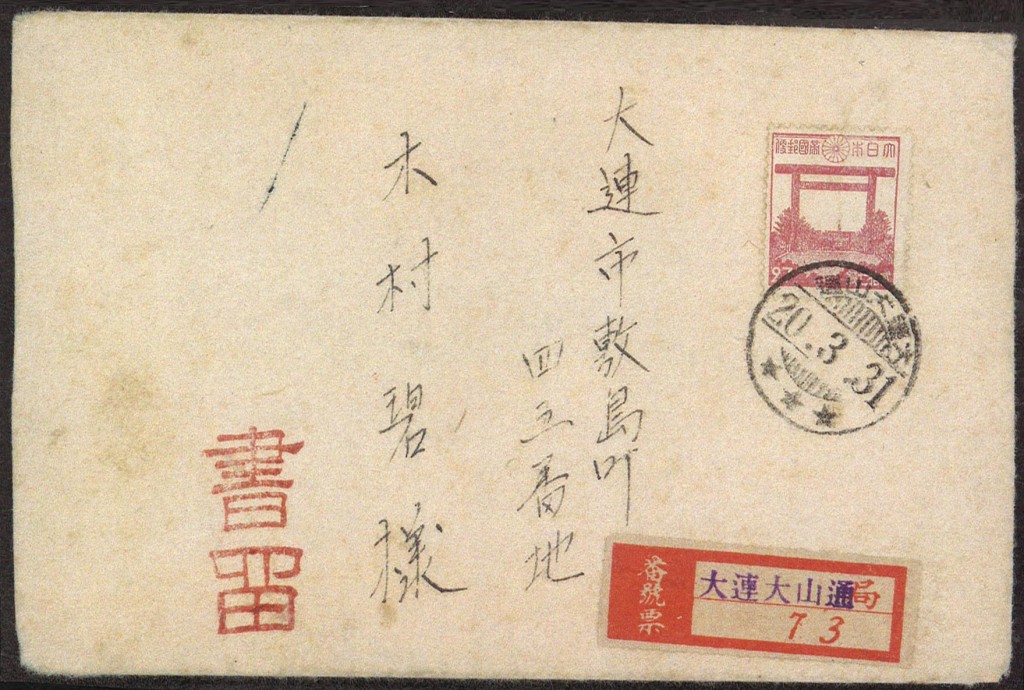 大日本帝國郵便
大連大山通
20.3.31
大連市敷島町
四五番地
木村碧様
書留
番號票
大連大山通局
73